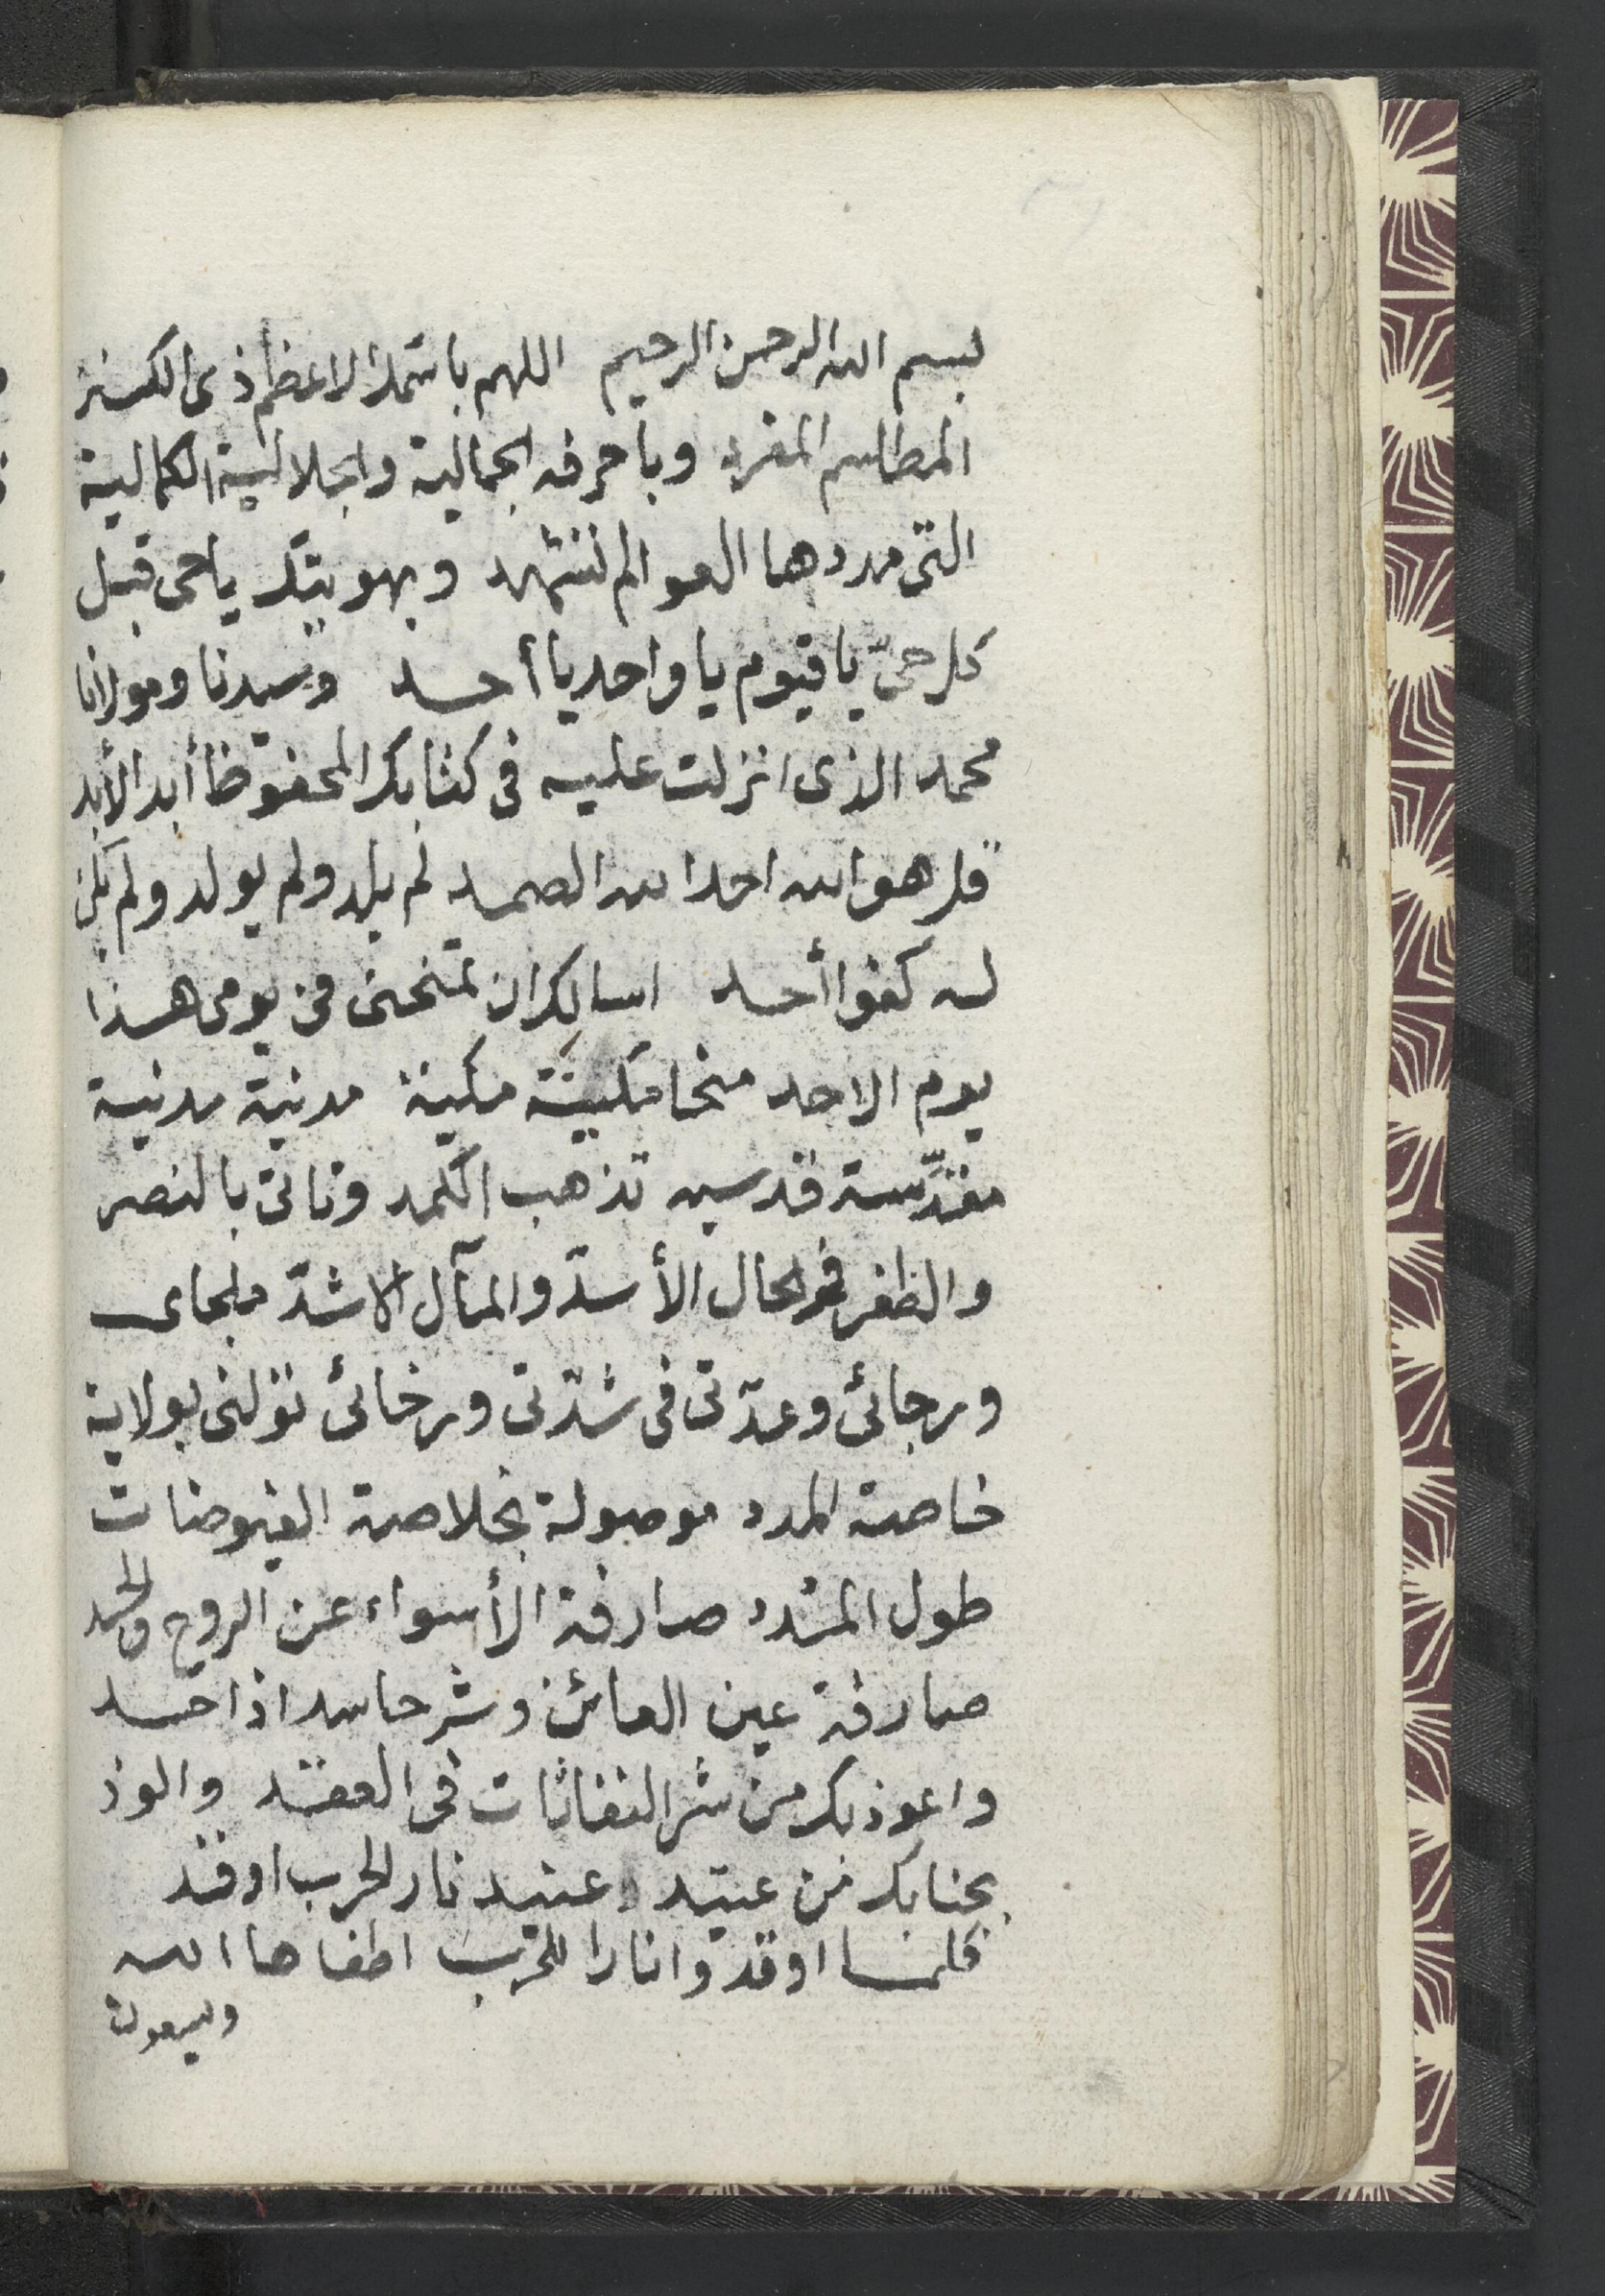 بسم الله الرحمن الرحيم اللهم باسمك الاعظم ذى الكنز
المطلسم المفرد وباحرفه الجمالية والجلالية الكمالية
التى مددها العوالم تشهد وبهويتك ياحى قبل
كل حىّ يا قيوم يا واحد يا أحد وبسيدنا ومولانا
محمد الذى انزلت عليه فى كتابك المحفوظ أبد الأبد
قل هو الله احد الله الصمد لم يلد ولم يولد ولم يكن
له كفوا أحد اسالك ان تمنحنى فى يومى هذا
يوم الاحد منحا مكينة مكية مدنية مدنية
مقدّسة قدسيه تذهب الكمد وتاتى بالنصر
والظفر فى الحال الأسدّ والمآل الاشدّ ملجاى
ورجائى وعدّتى فى شدّتى ورخائى تولنى بولاية
خاصة المدد موصولة بخلاصة الفيوضات
طول المدد صارفة الأسواء عن الروح والجسد
صارفة عين العائن وشر حاسد اذا حسد
واعوذ بك من شر النفاثات فى العقد والوذ
بجنابك من عتيد عنيد نار الحرب اوقد
كلما اوقدوا نارا للحرب اطفاها الله
ويسعون